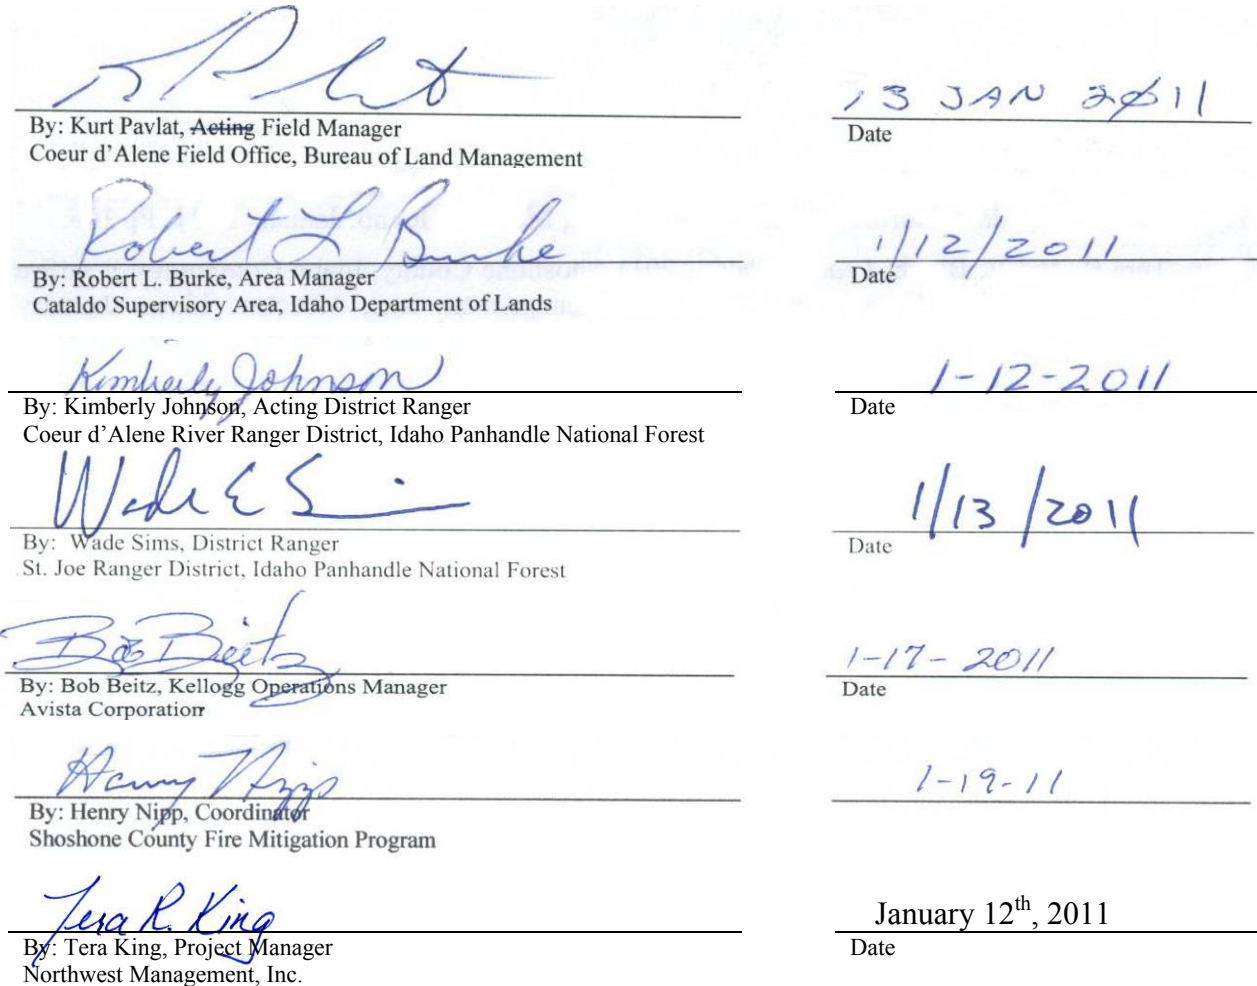 K Pavlat 13 JAN 2011
By: Kurt Pavlat, Acting Field Manager Date
Coeur d’Alene Field Office, Bureau of Land Management
Robert L Burke 1/12/2011
By: Robert L. Burke, Area Manager Date
Cataldo Supervisory Area, Idaho Department of Lands
Kimberly Johnson 1-12-2011
By: Kimberly Johnson, Acting District Ranger Date
Coeur d’Alene River Ranger District, Idaho Panhandle National Forest
Wade E Sims 1/13/2011
By: Wade Sims, District Ranger Date
St. Joe Ranger District, Idaho Panhandle National Forest
Bob Beitz 1-17-2011
By: Bob Beitz, Kellogg Operations Manager Date
Avista Corporation
Henry Nipp 1-19-11
By: Henry Nipp, Coordinator
Shoshone County Fire Mitigation Program
Tera R. King January 12th, 2011
By: Tera King, Project Manager Date
Northwest Management, Inc.